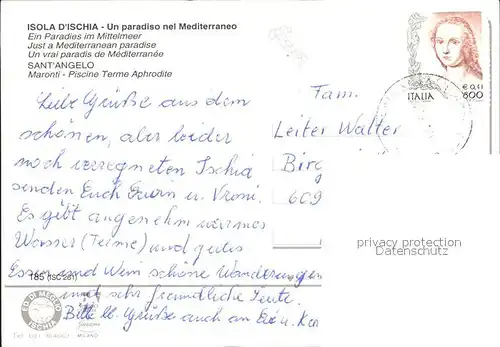 ISOLA D'ISCHIA - Un paradiso nel Mediterraneo
Ein Paradies im Mittelmeer
Just a Mediterranean paradise
Un vrai paradis de Méditerranée
SANT'ANGELO
Maronti - Piscine Terme Aphrodite
ITALIA
€ 0,41
800
Liebe Grüße aus dem
schönen, aber leider
noch verregneten Ischia
senden Euch Erwin u. Vroni.
Es gibt angenehm warmes
Wasser (Terme) und gutes
Essen und Wein schöne Wanderungen
und sehr freundliche Leute.
Bitte lb. Grüße auch an
Fam.
Leiter Walter
Birg
609
privacy protection
Datenschutz
185 (ISC 281)
ED. DI MEGLIO
ISCHIA
MILANO